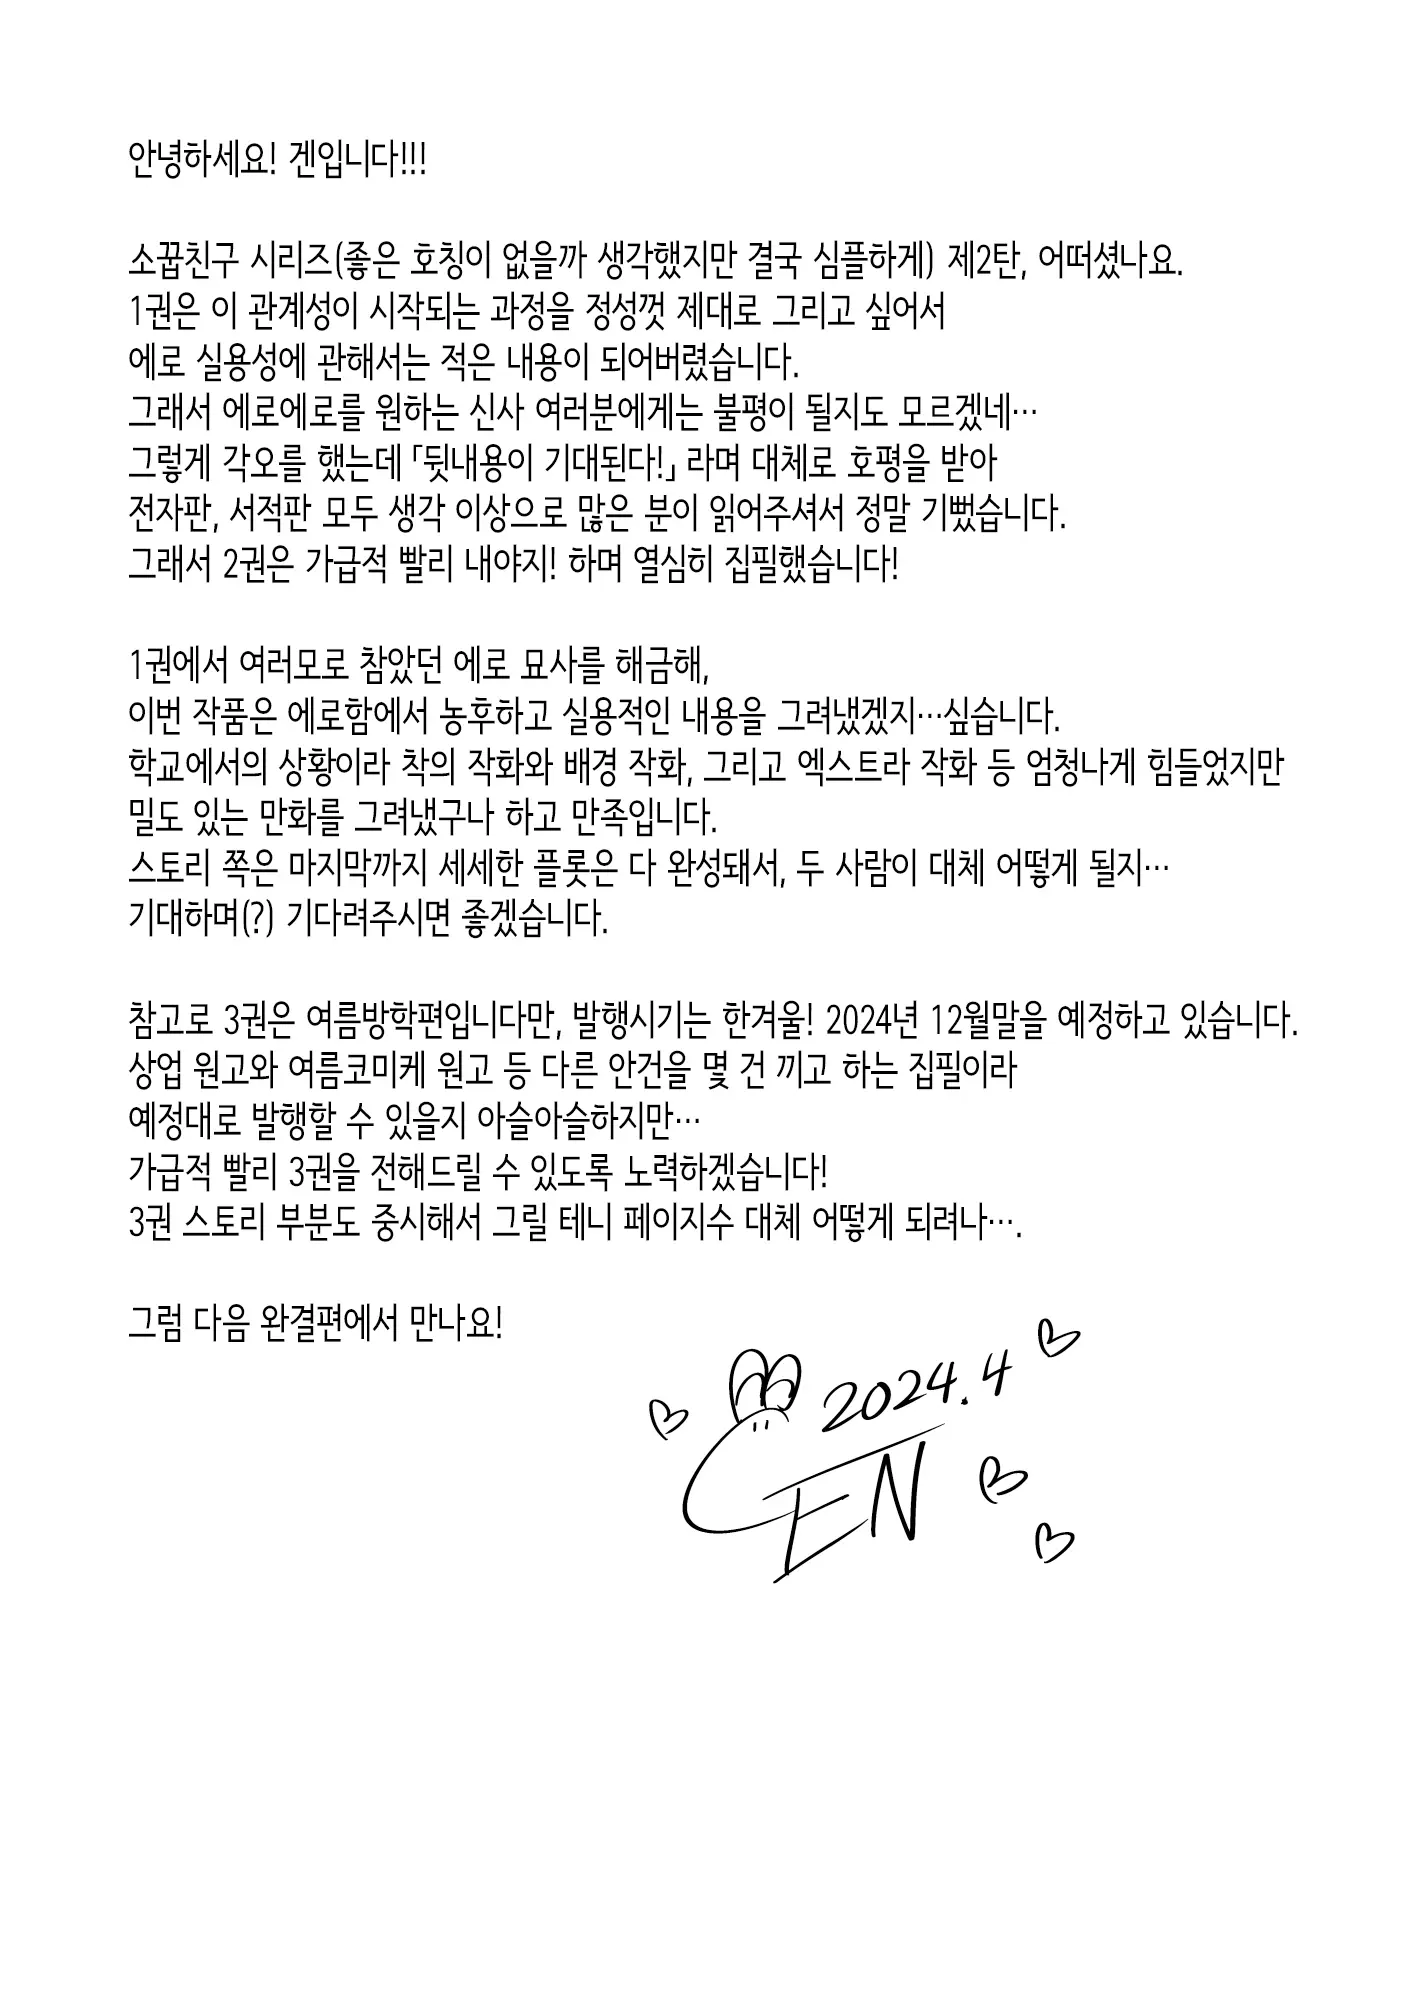 안녕하세요! 겐입니다!!!
소꿉친구 시리즈(좋은 호칭이 없을까 생각했지만 결국 심플하게) 제2탄, 어떠셨나요.
1권은 이 관계성이 시작되는 과정을 정성껏 제대로 그리고 싶어서
에로 실용성에 관해서는 적은 내용이 되어버렸습니다.
그래서 에로에로를 원하는 신사 여러분에게는 불평이 될지도 모르겠네…
그렇게 각오를 했는데 「뒷내용이 기대된다!」 라며 대체로 호평을 받아
전자판, 서적판 모두 생각 이상으로 많은 분이 읽어주셔서 정말 기뻤습니다.
그래서 2권은 가급적 빨리 내야지! 하며 열심히 집필했습니다!
1권에서 여러모로 참았던 에로 묘사를 해금해,
이번 작품은 에로함에서 농후하고 실용적인 내용을 그려냈겠지…싶습니다.
학교에서의 상황이라 착의 작화와 배경 작화, 그리고 엑스트라 작화 등 엄청나게 힘들었지만
밀도 있는 만화를 그려냈구나 하고 만족입니다.
스토리 쪽은 마지막까지 세세한 플롯은 다 완성돼서, 두 사람이 대체 어떻게 될지…
기대하며(?) 기다려주시면 좋겠습니다.
참고로 3권은 여름방학편입니다만, 발행시기는 한겨울! 2024년 12월말을 예정하고 있습니다.
상업 원고와 여름코미케 원고 등 다른 안건을 몇 건 끼고 하는 집필이라
예정대로 발행할 수 있을지 아슬아슬하지만…
가급적 빨리 3권을 전해드릴 수 있도록 노력하겠습니다!
3권 스토리 부분도 중시해서 그릴 테니 페이지수 대체 어떻게 되려나….
그럼 다음 완결편에서 만나요!
2024.4
GEN